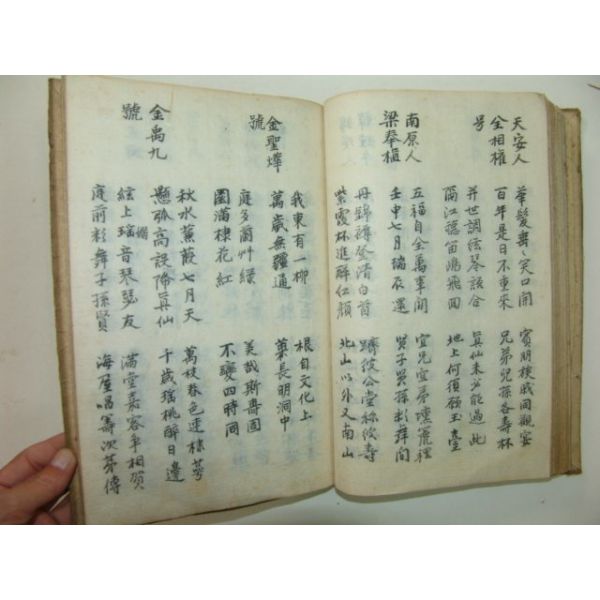 天安人
全相權
号
華髮 々笑口開
賓朋棣戚同觀宴
百年是日不重来
兄弟兒孫各壽杯
并世調絃琴 合
眞仙未必能過此
隔江 笛鴻飛回
地上何須願玉臺
南原人
梁奉
五福自全萬事閒
宜兄宜弟壎箎裡
壬申七月 衣還
賢子賢孫彩舞間
丹錦 登 白首
躋彼公堂稱彼壽
紫霞杯進醉仁顔
北山以外又南山
金聖燁
號
我東有一柳
根自文化上
萬歲無疆通
葉長明洞中
庭多蘭艸緑
美哉斯壽園
園滿棣花紅
不變四時同
金禹九
號
秋水蒹葭七月天
萬枝春色連棣萼
懸弧高設降眞仙
千歲瑤桃醉日邊
絃上瑤音琴瑟友
滿堂嘉客爭相賀
庭前彩舞子孫賢
海屋唱籌次第傳